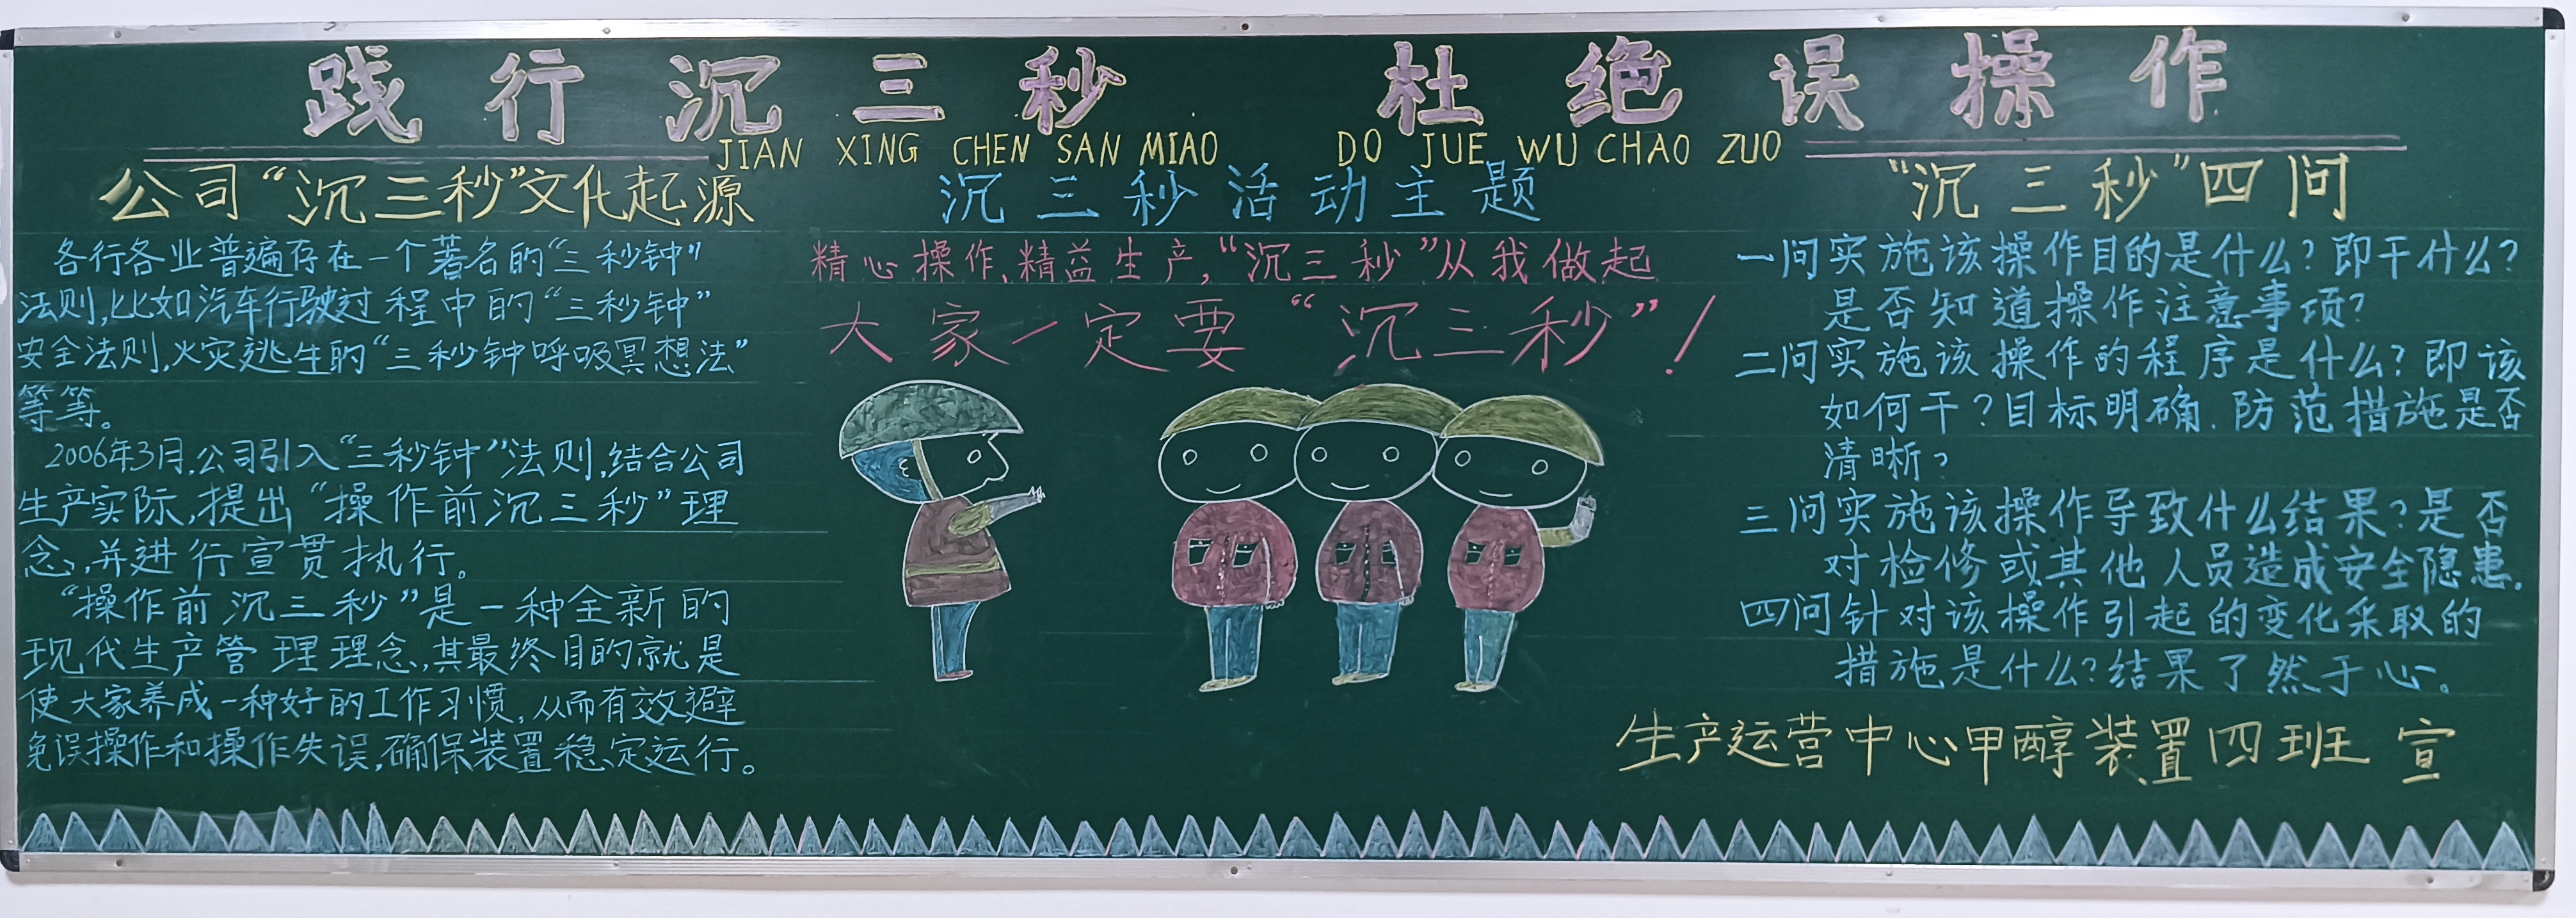 践行沉三秒 杜绝误操作
JIAN XING CHEN SAN MIAO DO JUE WU CHAO ZUO
公司“沉三秒”文化起源
各行各业普遍存在一个著名的“三秒钟”
法则,比如汽车行驶过程中的“三秒钟”
安全法则,火灾逃生的“三秒钟呼吸冥想法”
等等。
2006年3月,公司引入“三秒钟”法则,结合公司
生产实际,提出“操作前沉三秒”理
念,并进行宣贯执行。
“操作前沉三秒”是一种全新的
现代生产管理理念,其最终目的就是
使大家养成一种好的工作习惯,从而有效避
免误操作和操作失误,确保装置稳定运行。
沉三秒活动主题
精心操作,精益生产,“沉三秒”从我做起
大家一定要“沉三秒”!
“沉三秒”四问
一问实施该操作目的是什么?即干什么?
是否知道操作注意事项?
二问实施该操作的程序是什么?即该
如何干?目标明确.防范措施是否
清晰?
三问实施该操作导致什么结果?是否
对检修或其他人员造成安全隐患.
四问针对该操作引起的变化采取的
措施是什么?结果了然于心。
生产运营中心甲醇装置四班 宣